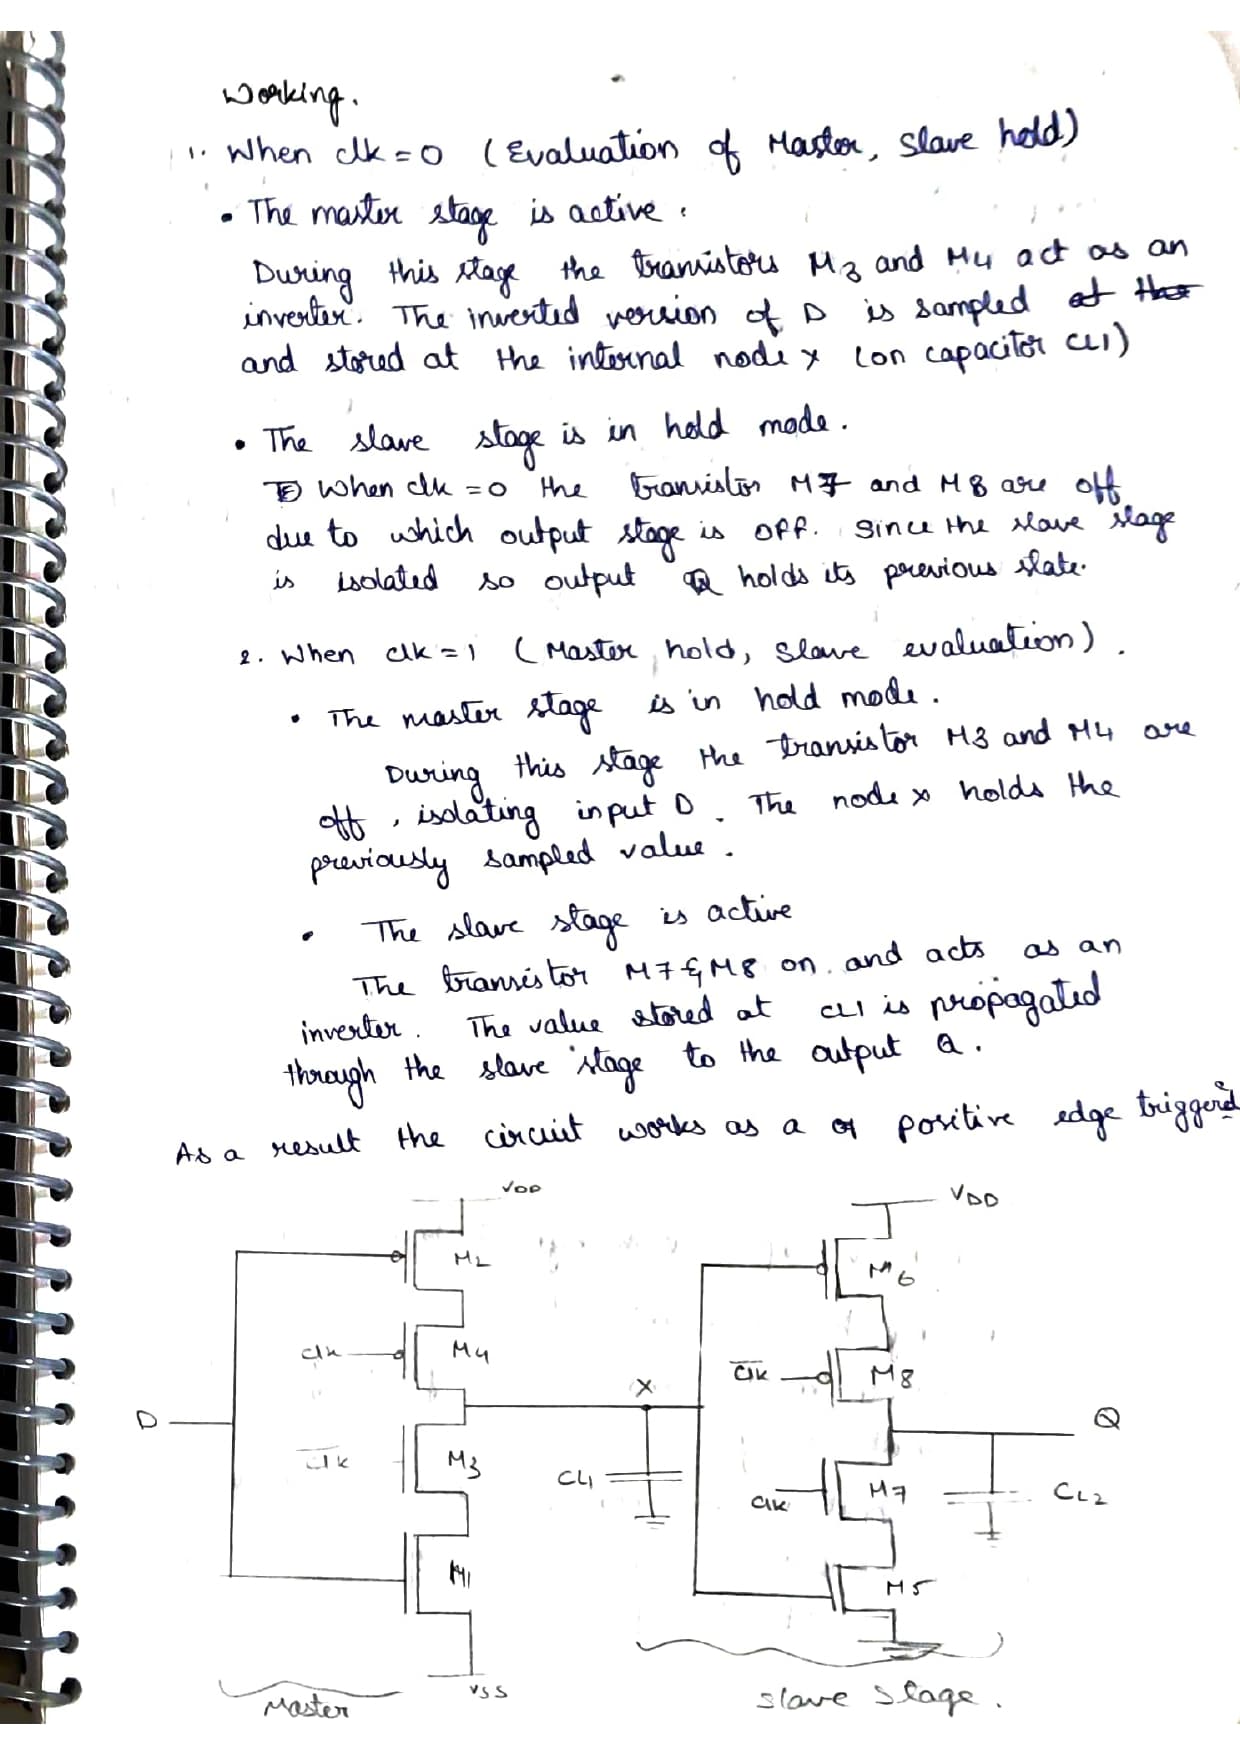 Working.
1. When clk = 0 (Evaluation of Master, slave hold)
• The master stage is active.
During this stage the transistors M3 and M4 act as an
inverter. The inverted version of D is sampled at the
and stored at the internal node x (on capacitor CL1)
• The slave stage is in hold mode.
When clk = 0 the transistor M7 and M8 are off
due to which output stage is OFF. Since the slave stage
is isolated so output Q holds its previous state.
2. When clk = 1 (Master hold, slave evaluation).
• The master stage is in hold mode.
During this stage the transistor M3 and M4 are
off, isolating input D. The node x holds the
previously sampled value.
• The slave stage is active
The transistor M7 & M8 on and acts as an
inverter. The value stored at CL1 is propagated
through the slave stage to the output Q.
As a result the circuit works as a positive edge triggered
VDD
M2
clk
M4
D
X
clk
M3
CL1
M1
VSS
Master
VDD
M6
clk
M8
Q
clk
M7
CL2
M5
slave stage.